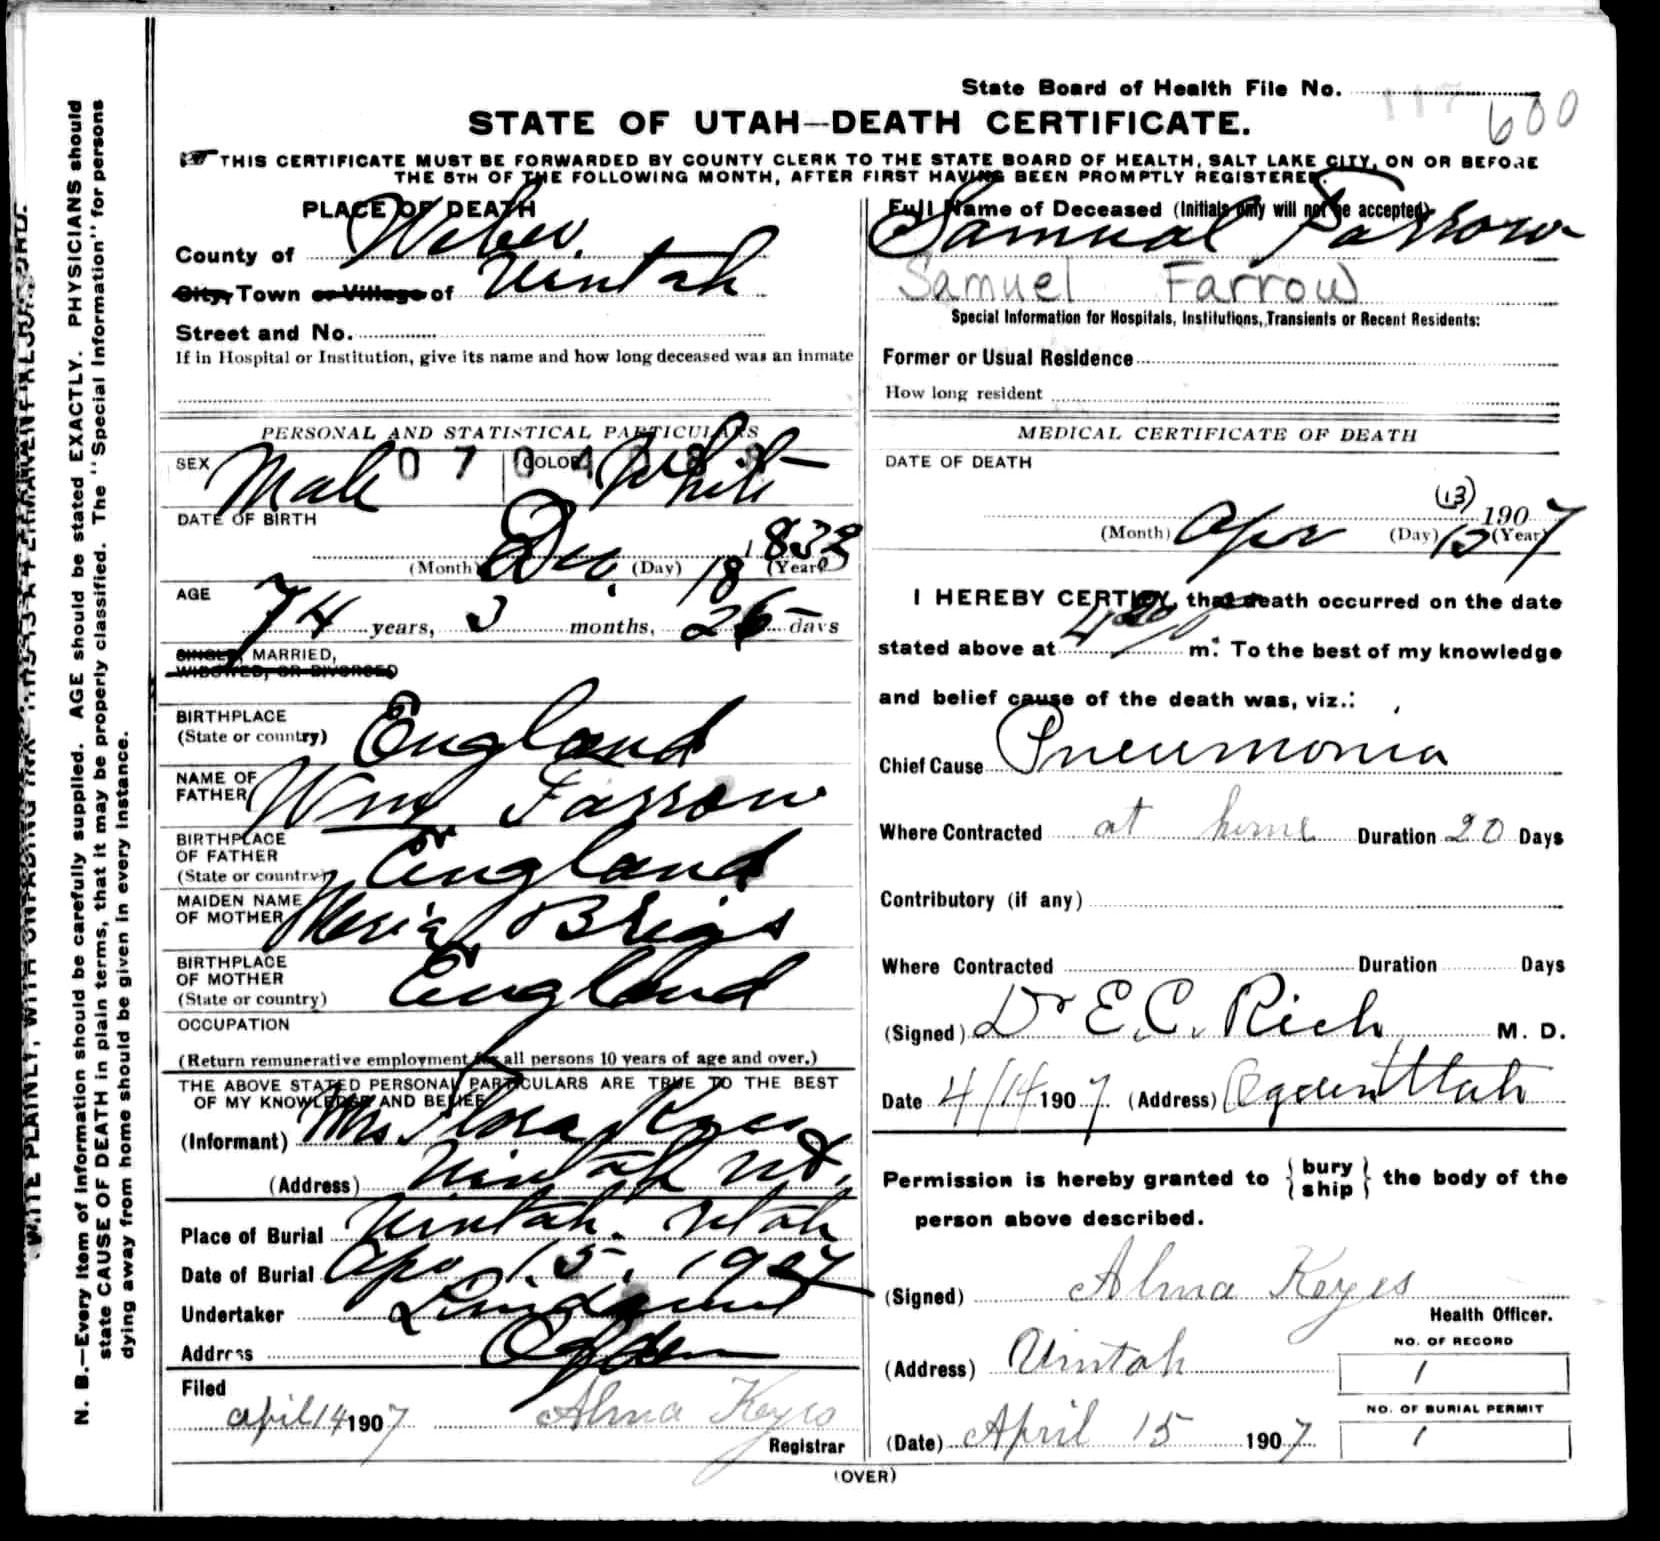 State Board of Health File No. 117 600
STATE OF UTAH—DEATH CERTIFICATE.
THIS CERTIFICATE MUST BE FORWARDED BY COUNTY CLERK TO THE STATE BOARD OF HEALTH, SALT LAKE CITY, ON OR BEFORE
THE 5TH OF THE FOLLOWING MONTH, AFTER FIRST HAVING BEEN PROMPTLY REGISTERED.
PLACE OF DEATH
County of Weber
City, Town or Village of Uintah
Street and No.
If in Hospital or Institution, give its name and how long deceased was an inmate
PERSONAL AND STATISTICAL PARTICULARS
SEX Male COLOR White
0 7 0 4
DATE OF BIRTH
(Month) Dec. (Day) 18 (Year) 1833
AGE
74 years, 3 months, 26 days
SINGLE, MARRIED,
WIDOWED, OR DIVORCED
BIRTHPLACE
(State or country) England
NAME OF
FATHER Wm Farrow
BIRTHPLACE
OF FATHER
(State or country) England
MAIDEN NAME
OF MOTHER Meria Brigs
BIRTHPLACE
OF MOTHER
(State or country) England
OCCUPATION
(Return remunerative employment for all persons 10 years of age and over.)
THE ABOVE STATED PERSONAL PARTICULARS ARE TRUE TO THE BEST
OF MY KNOWLEDGE AND BELIEF
(Informant) Mrs Flora Keyes
(Address) Uintah Ut.
Place of Burial Uintah. Utah
Date of Burial Apr 15, 1907
Undertaker Lindquist
Address Ogden
Filed
April 14 1907 Alma Keyes
Registrar
Full Name of Deceased (Initials only will not be accepted)
Samual Farrow
Samuel Farrow
Special Information for Hospitals, Institutions, Transients or Recent Residents:
Former or Usual Residence
How long resident
MEDICAL CERTIFICATE OF DEATH
DATE OF DEATH
(13)
(Month) Apr (Day) 13 1907 (Year)
I HEREBY CERTIFY, that death occurred on the date
stated above at m. To the best of my knowledge
and belief cause of the death was, viz.:
Chief Cause Pneumonia
Where Contracted at home Duration 20 Days
Contributory (if any)
Where Contracted Duration Days
(Signed) Dr E. C. Rich M. D.
Date 4/14 1907 (Address) Ogden Utah
Permission is hereby granted to {bury ship} the body of the
person above described.
(Signed) Alma Keyes
Health Officer.
(Address) Uintah
NO. OF RECORD
1
NO. OF BURIAL PERMIT
(Date) April 15 1907 1
(OVER)
N. B.—Every item of information should be carefully supplied. AGE should be stated EXACTLY. PHYSICIANS should
state CAUSE OF DEATH in plain terms, that it may be properly classified. The "Special Information" for persons
dying away from home should be given in every instance.
WRITE PLAINLY, WITH UNFADING INK—THIS IS A PERMANENT RECORD.